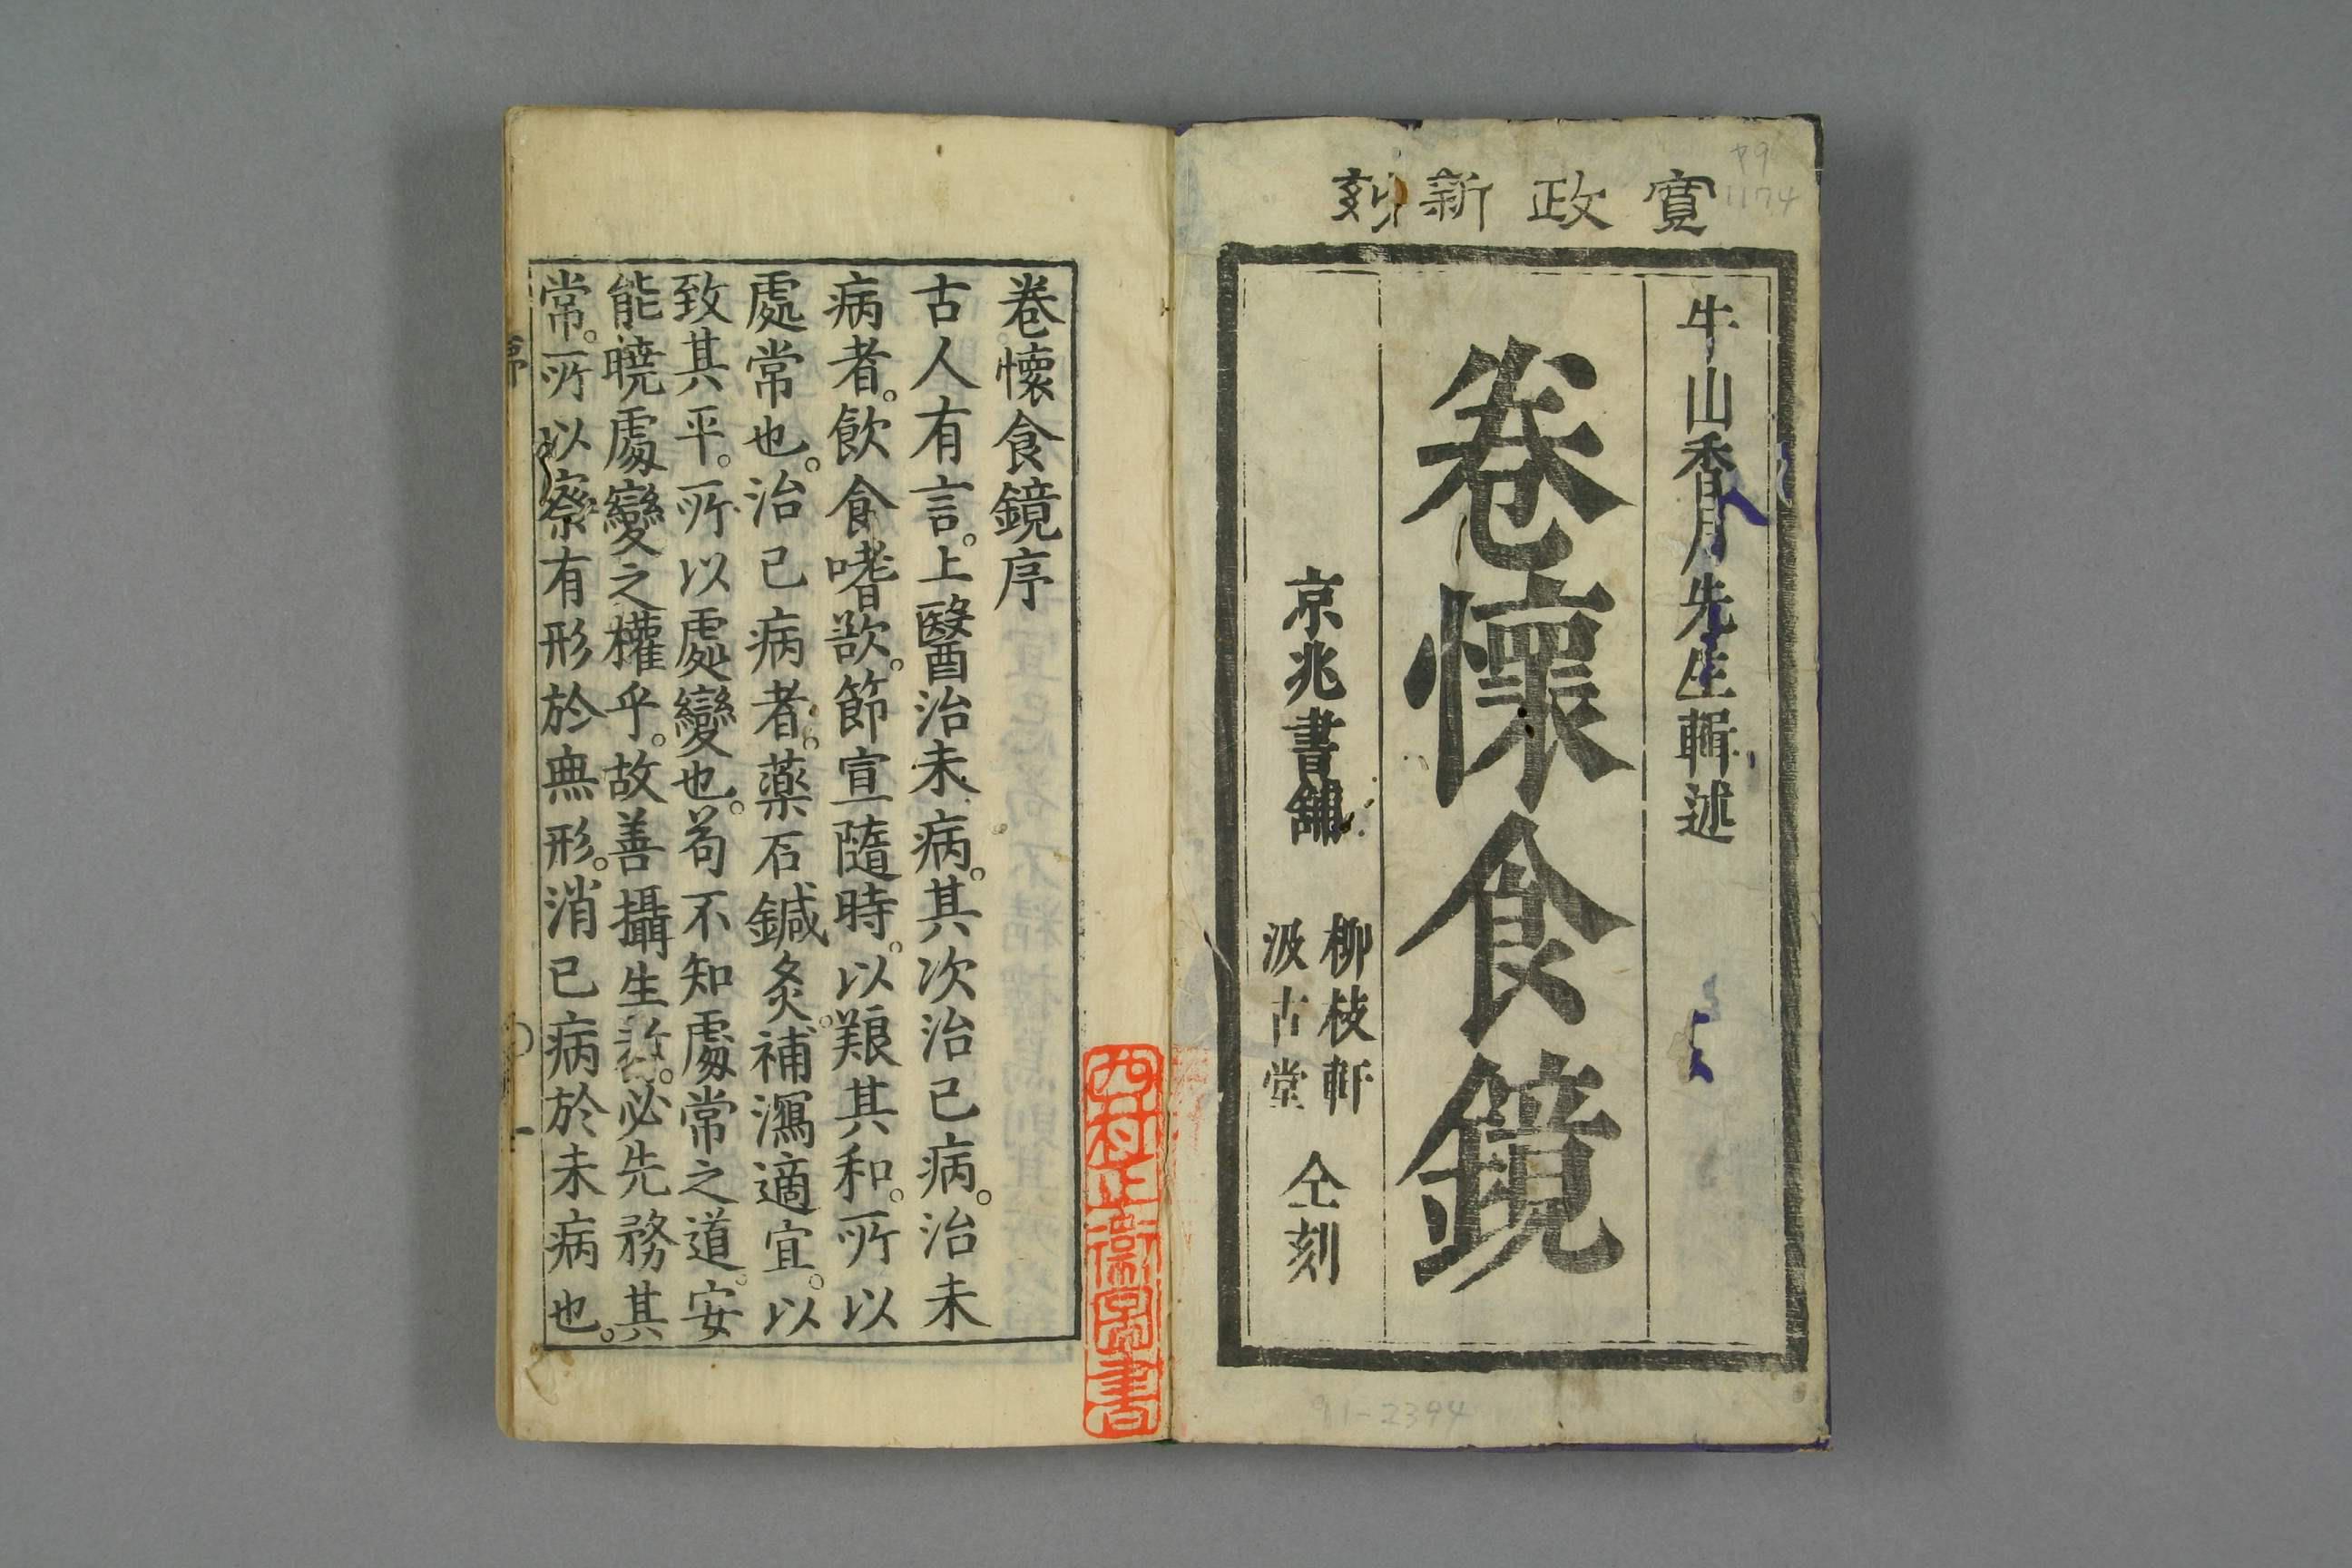 寛政新刻
牛山香月先生輯述
卷懷食鏡
京兆書舗
柳枝軒
汲古堂
仝刻
卷懷食鏡序
古人有言。上醫治未病。其次治已病。治未
病者。飲食嗜欲。節宣隨時。以艱其和。所以
處常也。治已病者。薬石鍼灸。補瀉適宜。以
致其平。所以處變也。苟不知處常之道。安
能曉處變之權乎。故善攝生者。必先務其
常。所以察有形於無形。消已病於未病也。
序
一
91-2394